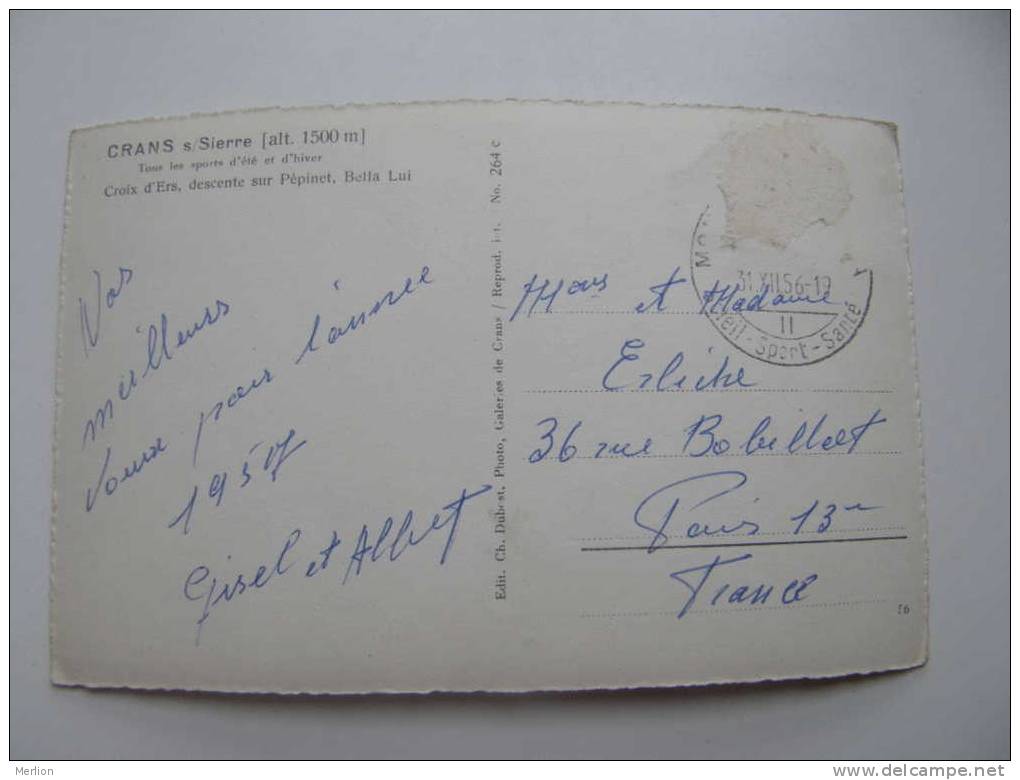 CRANS s/Sierre [alt. 1500 m]
Tous les sports d'été et d'hiver
Croix d'Ers, descente sur Pépinet, Bella Lui
Nos
meilleurs
voeux pour l'année
1957
Gisel et Albert
Edit. Ch. Dubost, Photo, Galeries de Crans / Reprod. int. No. 264 c
31.XII.56-19
II
Soleil-Sport-Santé
Mons et Madame
Erliche
36 rue Bobillot
Paris 13
France
16
Merlion
www.delcampe.net